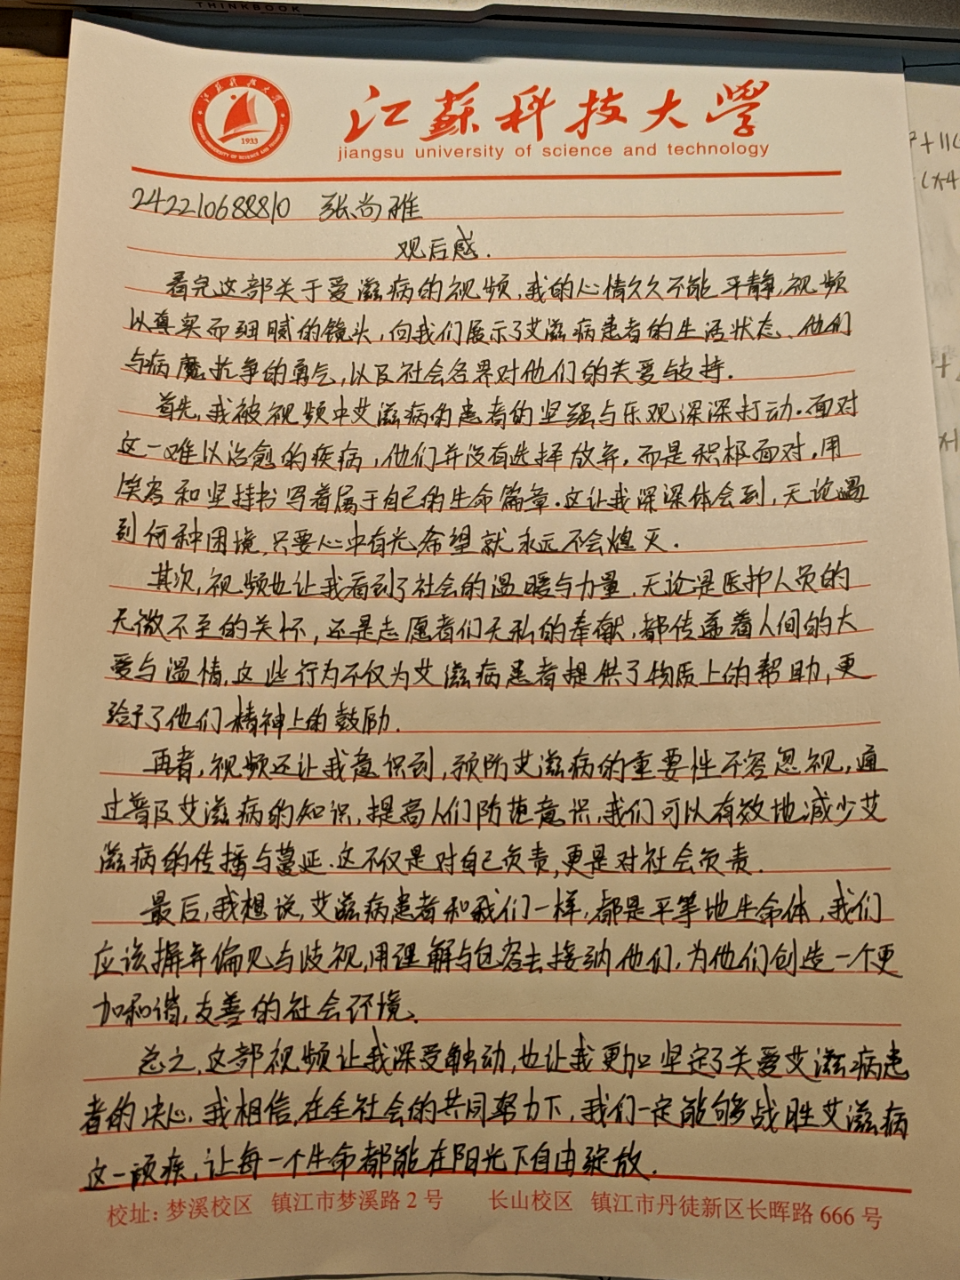 THINKBOOK
江苏科技大学
JIANGSU UNIVERSITY OF SCIENCE AND TECHNOLOGY
1933
江蘇科技大學
jiangsu university of science and technology
242210688810 张尚雅
观后感.
看完这部关于爱滋病的视频,我的心情久久不能平静,视频
以真实而细腻的镜头,向我们展示了艾滋病患者的生活状态、他们
与病魔抗争的勇气,以及社会各界对他们的关爱与支持.
首先,我被视频中艾滋病的患者的坚强与乐观深深打动.面对
这一难以治愈的疾病,他们并没有选择放弃,而是积极面对,用
笑容和坚持书写着属于自己的生命篇章.这让我深深体会到,无论遇
到何种困境,只要心中有光,希望就永远不会熄灭.
其次,视频也让我看到了社会的温暖与力量,无论是医护人员的
无微不至的关怀,还是志愿者们无私的奉献,都传递着人间的大
爱与温情,这些行为不仅为艾滋病患者提供了物质上的帮助,更
给予了他们精神上的鼓励.
再者,视频还让我意识到,预防艾滋病的重要性不容忽视,通
过普及艾滋病的知识,提高人们防范意识,我们可以有效地减少艾
滋病的传播与蔓延.这不仅是对自己负责,更是对社会负责.
最后,我想说,艾滋病患者和我们一样,都是平等地生命体,我们
应该摒弃偏见与歧视,用理解与包容去接纳他们,为他们创造一个更
加和谐,友善的社会环境.
总之,这部视频让我深受触动,也让我更加坚定了关爱艾滋病患
者的决心.我相信,在全社会的共同努力下,我们一定能够战胜艾滋病
这一顽疾,让每一个生命都能在阳光下自由绽放.
校址:梦溪校区 镇江市梦溪路2号 长山校区 镇江市丹徒新区长晖路666号